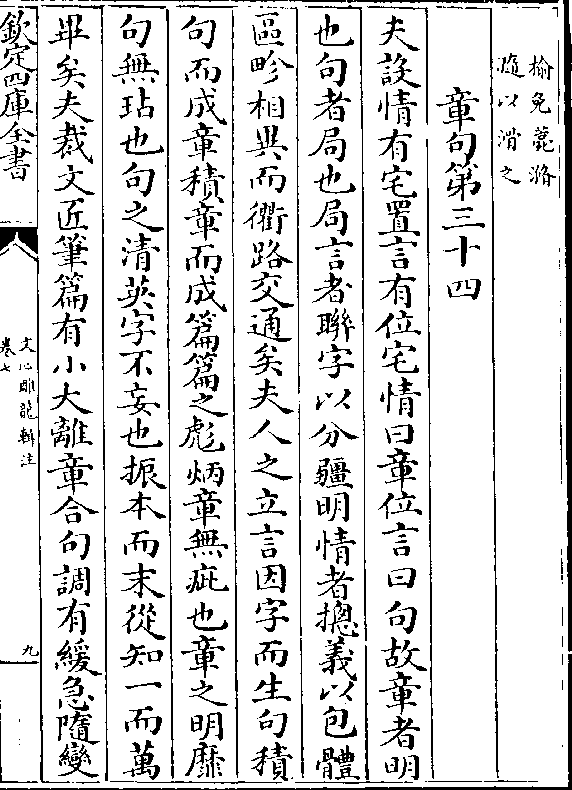 榆免薧滫
瀡以滑之
章句第三十四
夫設情有宅置言有位宅情曰章位言曰句故章者明
也句者局也局言者聯字以分疆明情者摠義以包體
區畛相異而衢路交通矣夫人之立言因字而生句積
句而成章積章而成篇篇之彪炳章無疵也章之明靡
句無玷也句之清英字不妄也振本而末從知一而萬
畢矣夫裁文匠筆篇有小大離章合句調有緩急隨變
欽定四庫全書
文心雕龍輯注
卷七
九